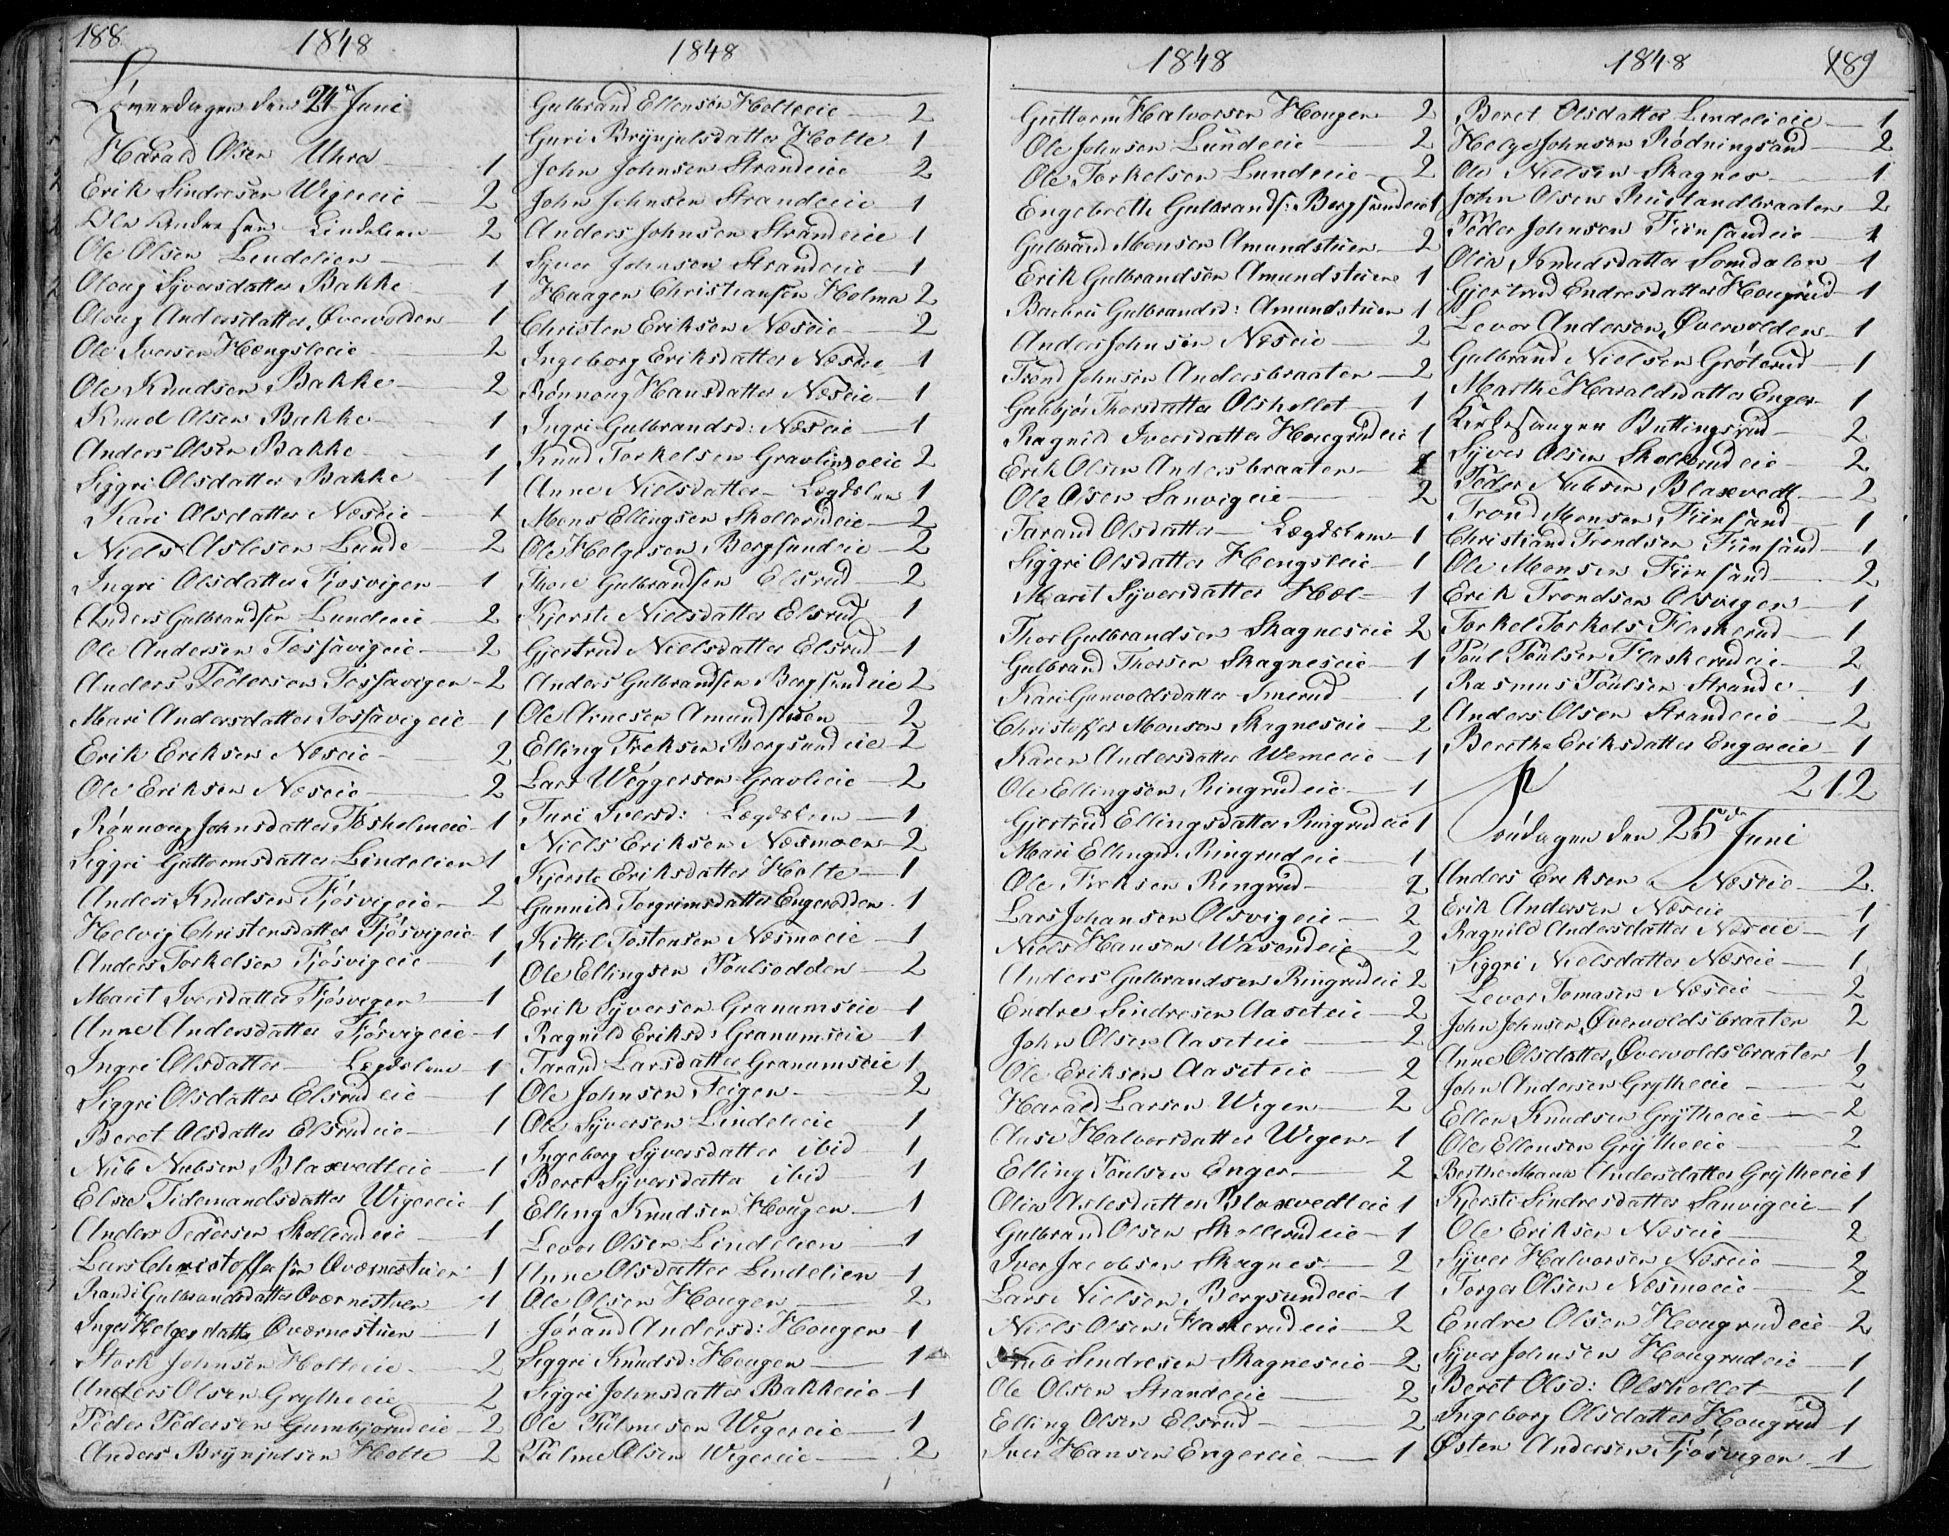 188
1848
Løverdagen den 24de Juni
Harald Olsen Uhra 1
Erik Sindresen Wigereie 2
Ole Andresen Lindelien 2
Ole Olsen Lindelien 1
Oloug Syversdatter Bakke 1
Oloug Andersdatter Øvervolden 1
Ole Iversen Hængsleeie 2
Ole Knudsen Bakke 2
Knud Olsen Bakke 1
Anders Olsen Bakke 1
Siggri Olsdatter Bakke 1
Kari Olsdatter Næseie 1
Niels Aslesen Lunde 2
Ingri Olsdatter Fjøsvigen 1
Anders Gulbrandsen Lundeeie 2
Ole Andersen Fossavigeie 2
Anders Pedersen Fossavigen 2
Mari Andersdatter Fossavigeie 1
Erik Eriksen Næseie 2
Ole Eriksen Næseie 2
Rønnoug Johnsdatter Fosholmeie 1
Siggri Guttormsdatter Lindelien 1
Anders Knudsen Fjøsvigeie 2
Helvig Christensdatter Fjøsvigeie 1
Anders Torkelsen Fjøsvigeie 1
Marit Iversdatter Fjøsvigen 1
Anne Andersdatter Fjøsvigeie 1
Ingri Olsdatter Lægdslem 1
Siggri Olsdatter Elsrudeie 1
Beret Olsdatter Elsrudeie 1
Nub Nubsen Blaxvedteie 1
Elsie Tidemandsdatter Wigereie 1
Anders Pedersen Skollerudeie 1
Lars Christoffersen Oværnestuen 1
Randi Gulbrandsdatter Oværnestuen 1
Inger Helgesdatter Oværnestuen 1
Stork Johnsen Holteeie 2
Anders Olsen Grytheeie 2
Peder Pedersen Gumbjørudeie 2
Anders Brynjulsen Holte 2
1848
Gulbrand Ellensen Holteeie 2
Guri Brynjulsdatter Holte 1
John Johnsen Strandeie 2
John Johnsen Strandeeie 1
Anders Johnsen Strandeeie 1
Syver Johnsen Strandeeie 1
Haagen Christiansen Holma 2
Christen Eriksen Næseie 2
Ingeborg Eriksdatter Næseie 1
Rønnoug Hansdatter Næseie 1
Ingri Gulbrandsd: Næseie 1
Knud Torkelsen Gravlimoeie 2
Anne Nielsdatter Lægdslem 1
Mons Ellingsen Skollerudeie 2
Ole Helgesen Bergsundeie 2
Thore Gulbrandsen Elsrud 2
Kjersti Nielsdatter Elsrud 1
Gjertrud Nielsdatter Elsrud 1
Anders Gulbrandsen Bergsundeie 2
Ole Arnesen Amundstuen 2
Elling Freksen Bergsundeie 2
Lars Wiggersen Gravlieie 2
Turi Iversd: Lægdslem 1
Niels Eriksen Næsmoen 2
Kjersti Eriksdatter Holte 1
Gunnild Torgrimsdatter Engerodden 1
Kittil Tostensen Næsmoeie 1
Ole Ellingsen Poulsodden 2
Erik Syversen Granumseie 1
Ragnild Eriksd: Granumseie 1
Tarand Larsdatter Granumseie 1
Ole Johnsen Teigen 2
Ole Syversen Lindeleeie 1
Ingeborg Syversdatter ibid 1
Beret Syversdatter ibid 1
Elling Knudsen Hougen 1
Levor Olsen Lindelien 1
Anne Olsdatter Lindelien 1
Ole Olsen Hougen 2
Jørand Andersd: Hougen 1
Siggri Knudsd: Hougen 1
Siggri Johnsdatter Bakkeeie 1
Ole Palmesen Wigereie 1
Palme Olsen Wigereie 2
1848
Guttorm Halvorsen Hougen 2
Ole Johnsen Lundeeie 2
Ole Torkelsen Lundeeie 2
Engebreth Gulbrands: Bergsundeie 1
Gulbrand Monsen Amundstuen 2
Erik Gulbrandsen Amundstuen 1
Barbru Gulbrandsd: Amundstuen 1
Anders Johnsen Næseie 2
Trond Johnsen Andersbraaten 2
Gubbjør Thorsdatter Olshollet 1
Ragnild Iversdatter Hougrudeie 1
Erik Olsen Andersbraaten 2
Ole Olsen Sanvigeie 2
Tarand Olsdatter Lægdslem 1
Siggri Olsdatter Hengsleie 1
Marit Syversdatter Hæl 1
Thor Gulbrandsen Skagneseie 2
Gulbrand Thorsen Skagneseie 1
Kari Gunvoldsdatter Smerud 1
Christoffer Monsen Skagneseie 2
Karen Andersdatter Wemeeie 1
Ole Ellingsen Ringrudeie 1
Gjertrud Ellingsdatter Ringrudeie 1
Mari Ellingsd: Ringrudeie 1
Ole Freksen Ringrud 2
Lars Johansen Olsvigeie 2
Niels Hansen Wasendeie 2
Anders Gulbrandsen Ringrudeie 2
Endre Sindresen Aaseteie 2
John Olsen Aaseteie 2
Ole Eriksen Aaseteie 2
Harald Larsen Wigen 2
Aase Halvorsdatter Wigen 1
Elling Poulsen Enger 2
Olia Aslesdatter Blaxvedteie 1
Gulbrand Olsen Skollerudeie 1
Iver Jacobsen Skagnes 2
Lars Nielsen Bergsundeie 1
Niels Olsen Flaskerudeie 2
Nub Sindresen Skagneseie 2
Ole Olsen Strandeeie 2
Elling Olsen Elsrud 2
Iver Hansen Engereie 1
1848
189
Beret Olsdatter Lindelieie 1
Helge Johnsen Rødningsand 2
Ole Nielsen Skagnes 1
John Olsen Ruslandbraaten 2
Peder Johnsen Fiinsandeie 1
Olia Knudsdatter Somdalen 1
Gjertrud Endresdatter Hougrud 1
Levor Andersen Øvervolden 1
Gulbrand Nielsen Grøterud 1
Marthe Haraldsdatter Enger 1
Kirkesangen Buttingsrud 2
Syver Olsen Skollerudeie 2
Peder Nubsen Blaxvedt 2
Trond Monsen Fiinsand 1
Christian Trondsen Fiinsand 1
Ole Monsen Fiinsand 2
Erik Trondsen Olsvigen 1
Torkel Torkels. Flaskerud 1
Poul Poulsen Flaskerudeie 2
Rasmus Poulsen Strande 1
Anders Olsen Strandeeie 2
Berethe Eriksdatter Engereie 1
212
Søndagen den 25de Juni
Anders Eriksen Næseie 2
Erik Andersen Næseie 1
Ragnild Andersdatter Næseie 1
Siggri Nielsdatter Næseie 1
Levor Tomasen Næseie 2
John Johnsen Øvervoldsbraaten 2
Anne Olsdatter Øvervoldsbraaten 1
John Andersen Grytheeie 2
Ellen Knudsen Grytheeie 2
Ole Ellensen Grytheeie 2
Berthe Maria Andersdatter Grytheeie 1
Kjersti Sindresdatter Sanvigeie 1
Ole Eriksen Næseie 2
Syver Halvorsen Næseie 2
Torger Olsen Næsmoeie 2
Endre Olsen Hougrudeie 2
Syver Johnsen Hougrudeie 1
Beret Olsd: Olshollet 1
Ingeborg Olsdatter Hougrud 1
Østen Andersen Fjøsvigen 1